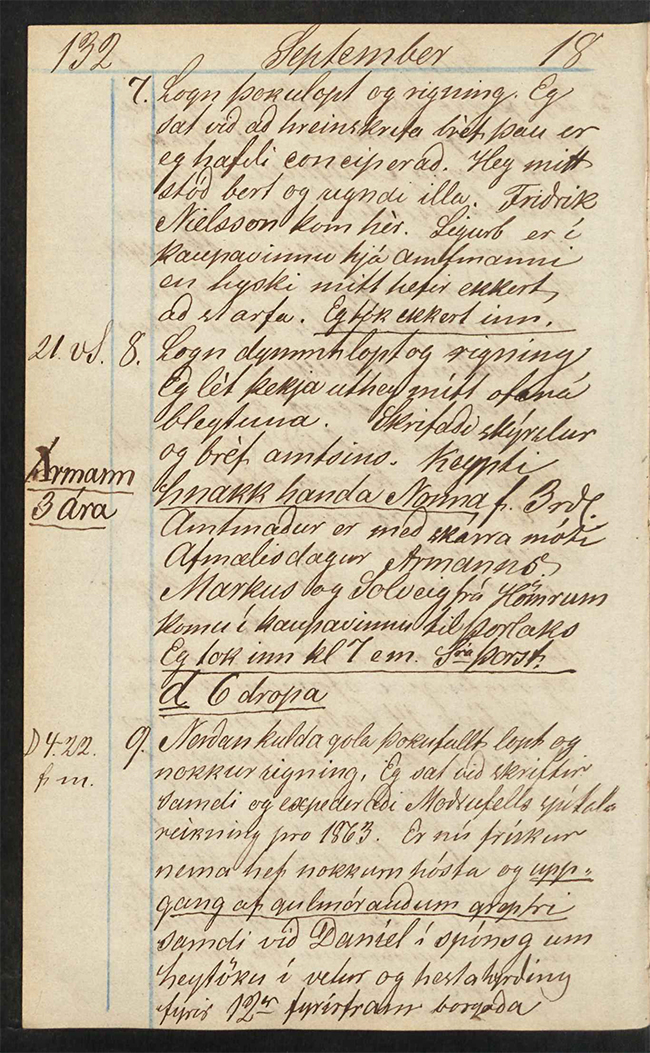 132 September 18
7. Logn þokulopt og rigning. Eg
sat við að hreinskrifa bréf þau er
eg hafði conciperað. Hey mitt
stóð bert og rigndi illa. Friðrik
Nielsson kom hér. Sigurb er í
kaupavinnu hjá amtmanni
en hyski mitt hefir ekkert
að starfa. Eg tók ekkert inn.
21. v S. 8. Logn dymm lopt og rigning
Eg lét þekja úthey mitt ofaná
bleytuna. Skrifaði skýrslur
og bréf amtsins. Keypti
Ármann
3 ára
hnakk handa Nonna f. 3 rd.
Amtmaður er með skárra móti
Afmælisdagur Ármanns
Markus og Solveig frá Hömrum
komu í kaupavinnu til Þorláks
Eg tok inn kl 7 em. Sra Þorst.
d. 6 dropa
D 4.22. 9. Norðan kulda gola þokufullt lopt og
f m. nokkur rigning. Eg sat við skriftir
samdi og expederaði Möðrufells spítala
reikning pro 1863. Er nú frískur
nema hef nokkurn hósta og upp-
gang af gulmórauðum grepfri
samdi við Daníel í um
heytöku í vetur og hestahirðing
fyrir 12 rd fyrirfram borgaða